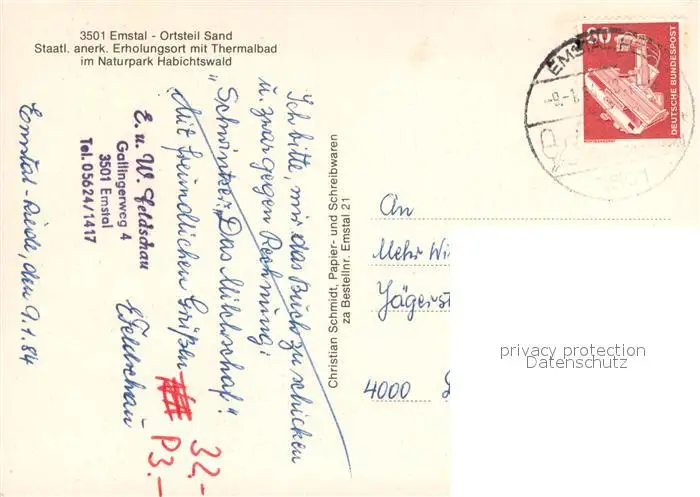 3501 Emstal - Ortsteil Sand
Staatl. anerk. Erholungsort mit Thermalbad
im Naturpark Habichtswald
Emstal-Riede, den 9.1.84
E. u. W. Feldschau
Gallingerweg 4
3501 Emstal
Tel. 05624/1417
Ich bitte, mir das Buch zu schicken
u. zwar gegen Rechnung:
"Schwintzer: Das Milchschaf".
Mit freundlichen Grüßen
EFeldschau
32,-
P3.-
Christian Schmidt, Papier- und Schreibwaren
za Bestellnr. Emstal 21
80
DEUTSCHE BUNDESPOST
EMSTAL
-9.-1.
3501
An
Mehr Wi
Jägerst
4000
privacy protection
Datenschutz